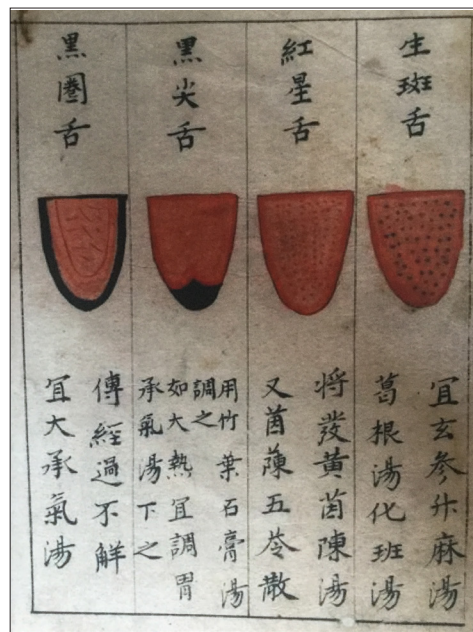 生斑舌
宜玄参升麻湯
葛根湯化班湯
紅星舌
将發黄茵陳湯
又茵蔯五苓散
黒尖舌
用竹葉石膏湯
調之
如大熱宜調胃
承氣湯下之
黒圏舌
傳經過不解
宜大承氣湯